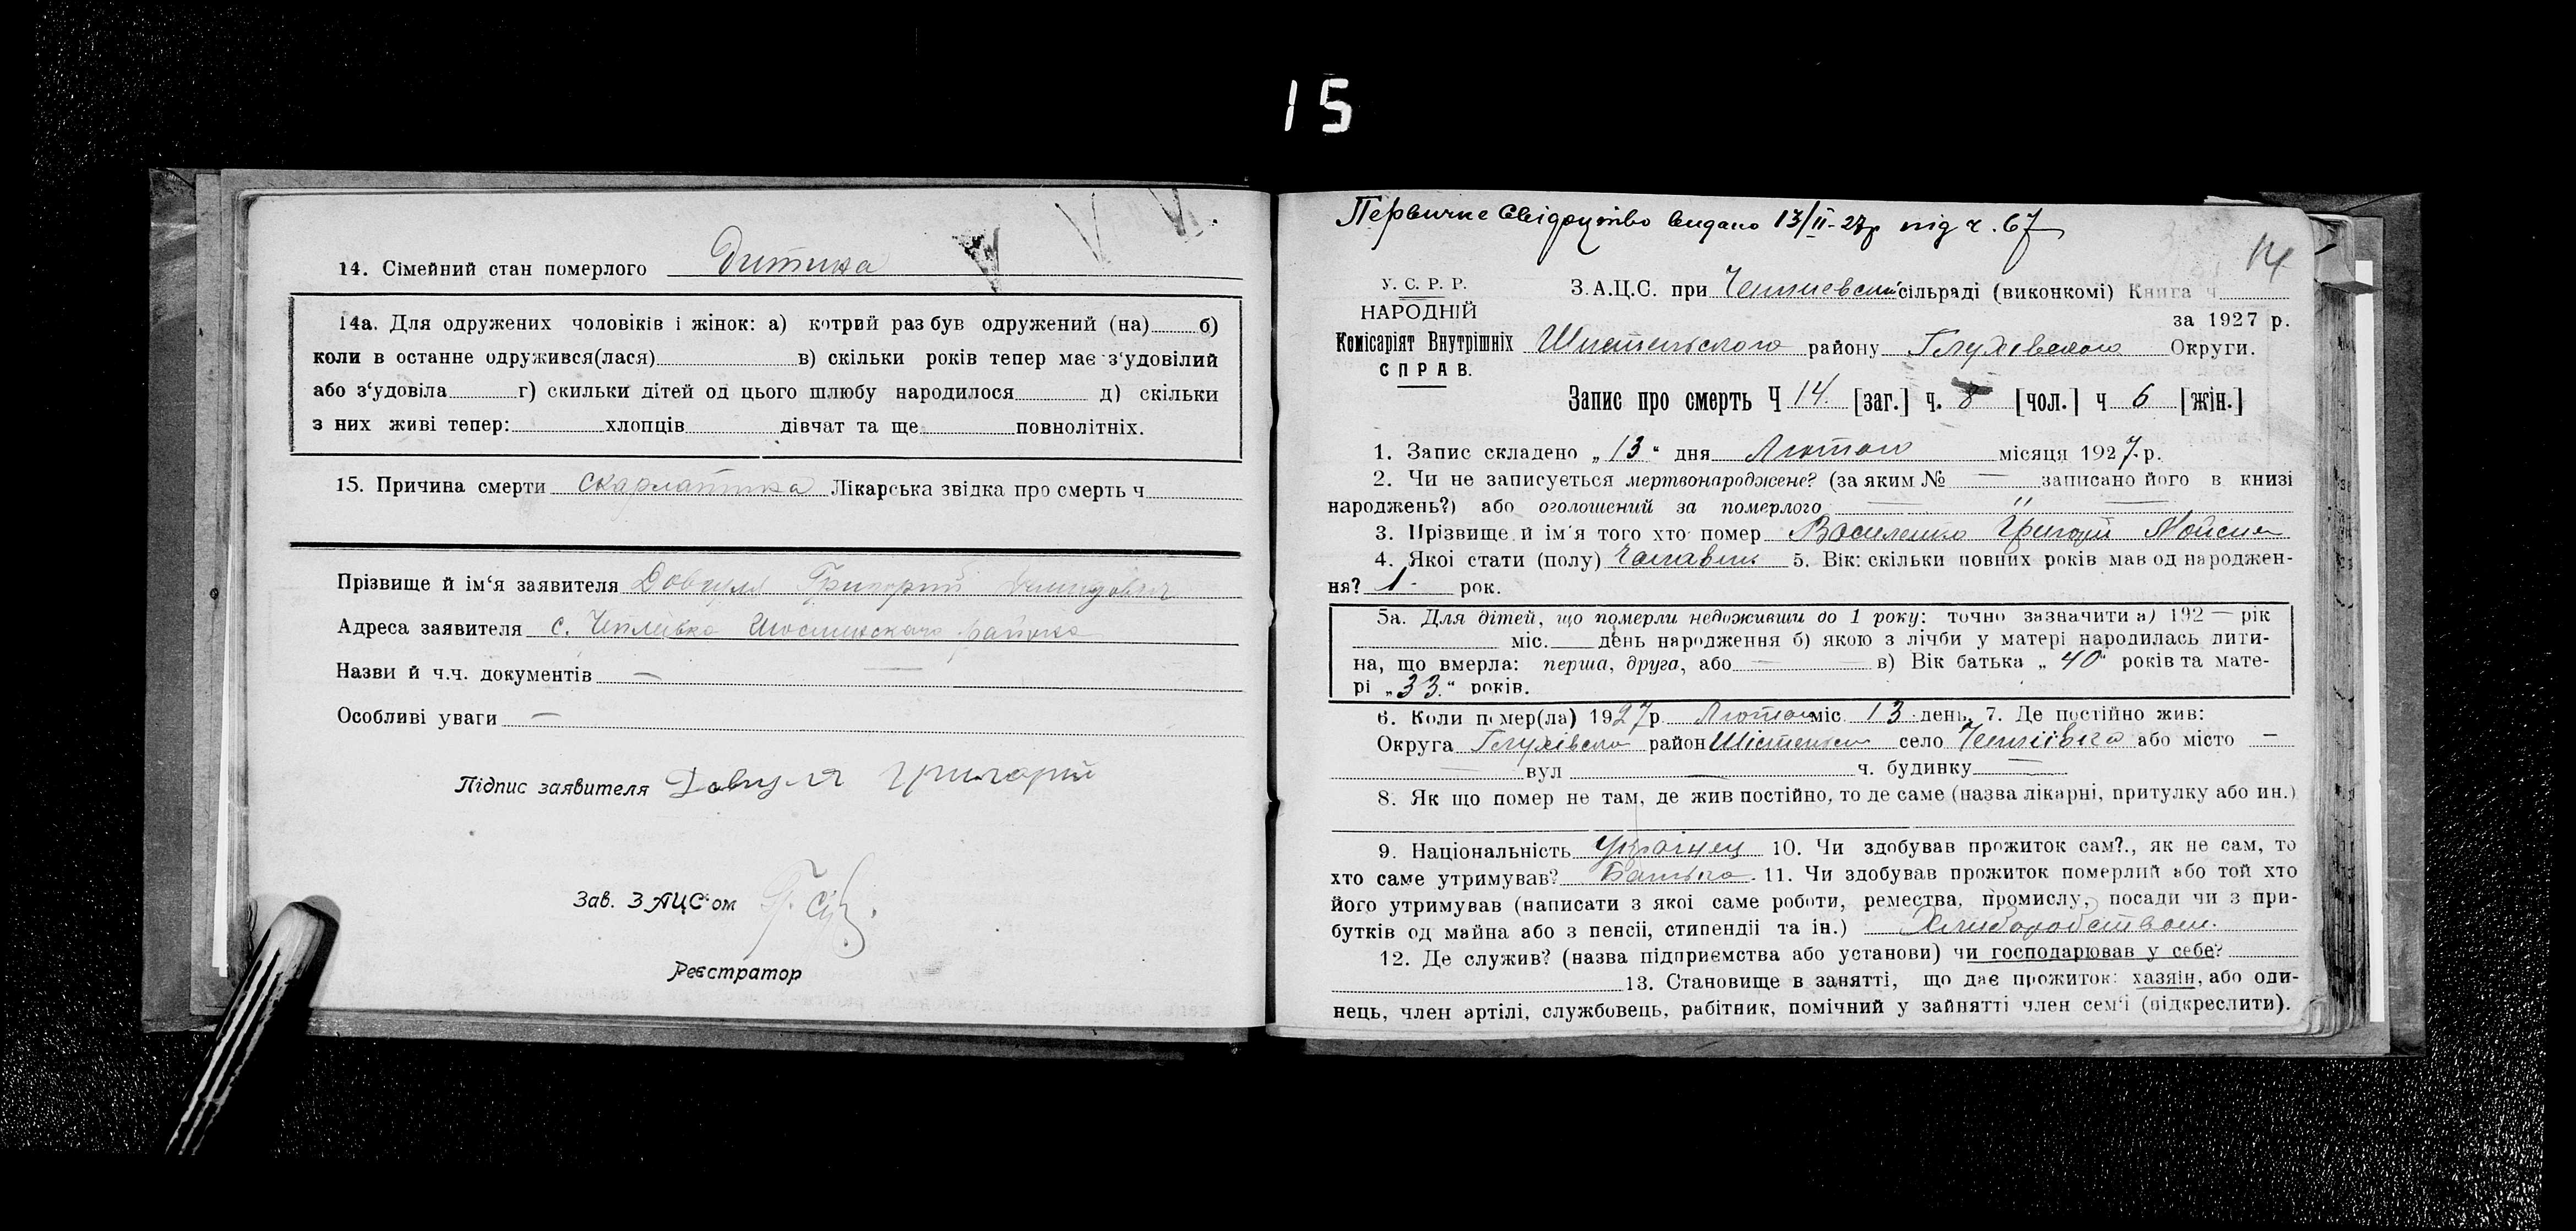 15
14. Сімейний стан померлого Дитина
14а. Для одружених чоловіків і жінок: а) котрий раз був одружений (на) б)
коли в останне одружився(лася) в) скільки років тепер має з'удовілий
або з'удовіла г) скильки дітей од цього шлюбу народилося д) скільки
з них живі тепер: хлопців дівчат та ще повнолітніх.
15. Причина смерти скарлатина Лікарська звідка про смерть ч
Прізвище й ім'я заявителя Довгуля Григорий
Адреса заявителя с. Чепліївка Шостинского района
Назви й ч.ч. документів —
Особливі уваги —
Підпис заявителя Довгуля Григорий
Зав. ЗАЦС'ом
Реєстратор
Первичне свідоцтво видано 13/II-27р під ч. 67
14
У. С. Р. Р.
НАРОДНІЙ
Комісаріят Внутрішніх
СПРАВ.
З.А.Ц.С. при сільраді (виконкомі) Книга ч
за 1927 р.
району Глухівского Округи.
Запис про смерть Ч 14. [заг.] ч. 8 [чол.] ч 6 [жін.]
1. Запис складено „13" дня Лютого місяця 1927 р.
2. Чи не записується мертвонароджене? (за яким № — записано його в книзі
народжень?) або оголошений за померлого — " —
3. Прізвище й ім'я того хто помер Василенко Григорій
4. Якої стати (полу) 5. Вік: скільки повних років мав од народжен-
ня? 1 рок.
5а. Для дітей, що померли недоживши до 1 року: точно зазначити а) 192 — рік
міс. день народження б) якою з лічби у матері народилась дити-
на, що вмерла: перша, друга, або — — в) Вік батька „40" років та мате-
рі „33." років.
6. Коли помер(ла) 1927р. Лютого міс. 13 день. 7. Де постійно жив:
Округа Глухівска район село Чепліївка або місто —
— вул — ч. будинку —
8. Як що помер не там, де жив постійно, то де саме (назва лікарні, притулку або ин.)
9. Національність Українец 10. Чи здобував прожиток сам?., як не сам, то
хто саме утримував? Батько. 11. Чи здобував прожиток померлий або той хто
його утримував (написати з якої саме роботи, ремества, промислу, посади чи з при-
бутків од майна або з пенсії, стипендії та ін.) Хлиборобством.
12. Де служив? (назва підприємства або установи) чи господарював у себе?
13. Становище в занятті, що дає прожиток: хазяін, або оди-
нець, член артілі, службовець, рабітник, помічний у зайнятті член сем'і (підкреслити).